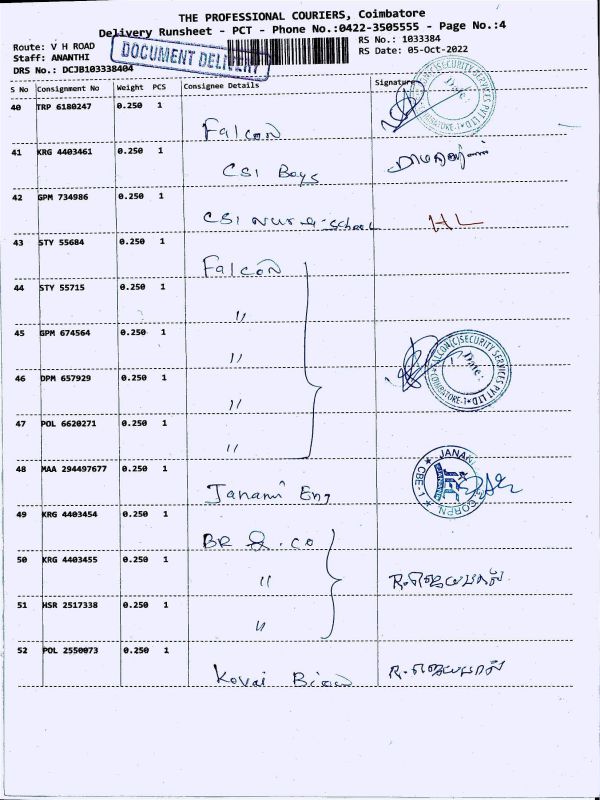 THE PROFESSIONAL COURIERS, Coimbatore
Delivery Runsheet - PCT - Phone No.:0422-3505555 - Page No.:4
Route: V H ROAD
Staff: ANANTHI
DRS No.: DCJB103338404
DOCUMENT DELIVERY
RS No.: 1033384
RS Date: 05-Oct-2022
S No Consignment No Weight PCS Consignee Details Signature
40 TRP 6180247 0.250 1
Falcon
FALCON(C)SECURITY SERVICES PVT LTD COIMBATORE-1
Date:
41 KRG 4403461 0.250 1
CSI Boys
42 GPM 734986 0.250 1
CSI School
HL
43 STY 55684 0.250 1
Falcon
44 STY 55715 0.250 1
"
45 GPM 674564 0.250 1
"
46 DPM 657929 0.250 1
"
FALCON(C)SECURITY SERVICES PVT LTD COIMBATORE-1
Date:
47 POL 6620271 0.250 1
"
48 MAA 294497677 0.250 1
Janani Eng
JANANI CORPN. CBE-1
49 KRG 4403454 0.250 1
BR & . CO
50 KRG 4403455 0.250 1
"
51 HSR 2517338 0.250 1
"
52 POL 2550073 0.250 1
Kovai